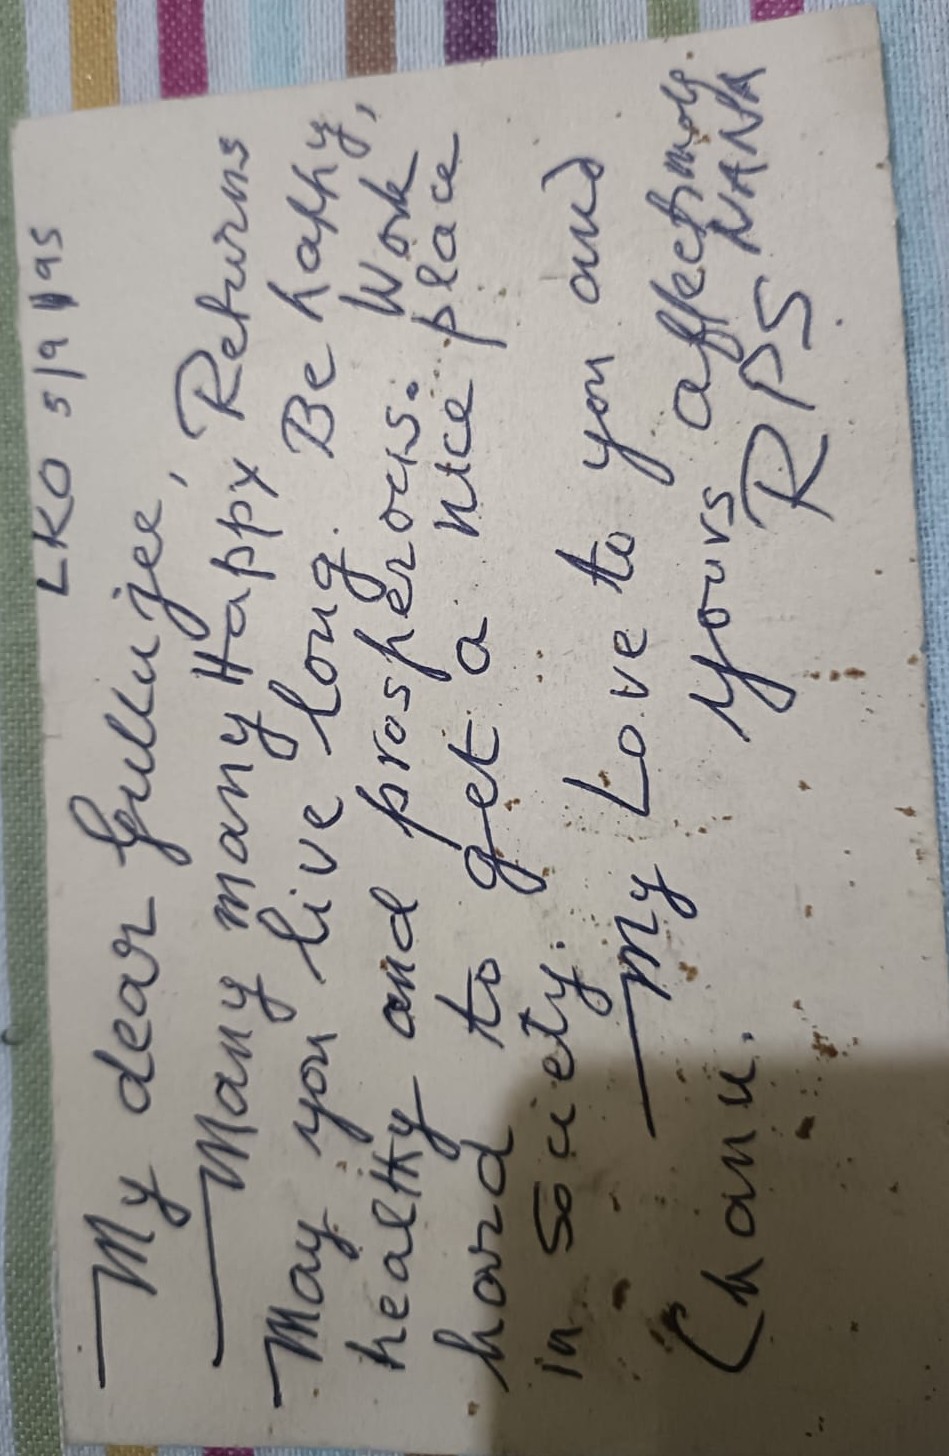 LKO 5/9/95
My dear Gullujee,
Many many Happy Returns
May you live long. Be happy,
healthy and prosperous. Work
hard to get a nice place
in society.
My Love to you and
Chanu.
yours affectionately.
NANA
RPS